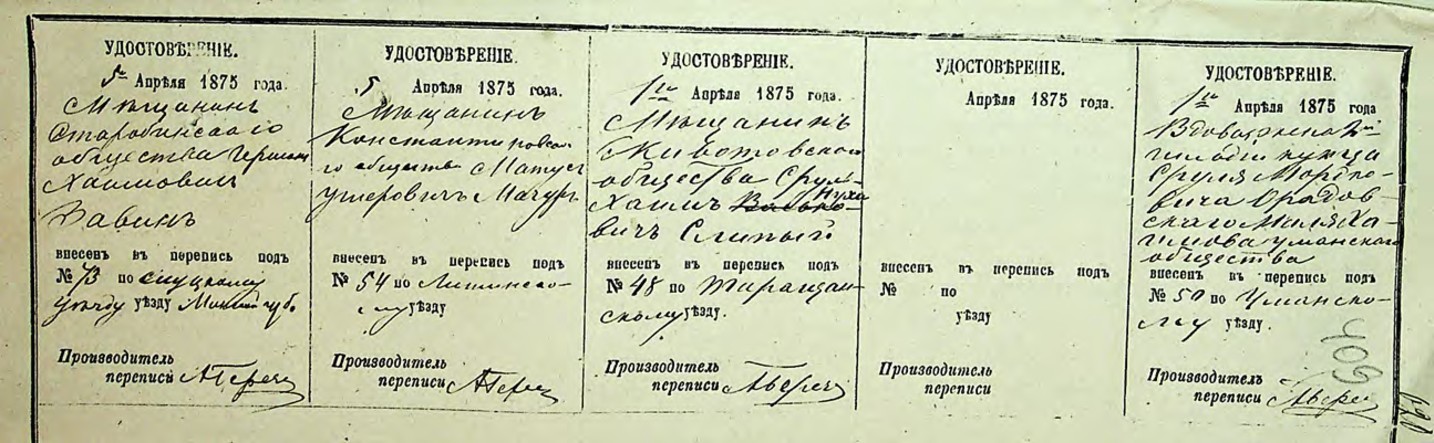 УДОСТОВѢРЕНІЕ.
5го Апрѣля 1875 года.
Мѣщанинъ
Старобинскаго
общества Гершонъ
Хаимовичъ
Рабинъ
внесенъ въ перепись подъ
№ 73 по Слуцкому
уѣзду уѣзду Минской губ.
Производитель
переписи
УДОСТОВѢРЕНІЕ.
5 Апрѣля 1875 года.
Мѣщанинъ
Константиновска-
го общества Матус
Ушеровичъ
внесенъ въ перепись подъ
№ 54 по Литинско-
му уѣзду
Производитель
переписи
УДОСТОВѢРЕНІЕ.
1го Апрѣля 1875 года.
Мѣщанинъ
Животовскаго
общества Сруль-
Хаимъ Нухи-
вичъ Слипый
внесенъ въ перепись подъ
№ 48 по Таращан-
скому уѣзду.
Производитель
переписи
УДОСТОВѢРЕНІЕ.
Апрѣля 1875 года.
внесенъ въ перепись подъ
№ по
уѣзду
Производитель
переписи
УДОСТОВѢРЕНІЕ.
1го Апрѣля 1875 года
Вдова 2й
гильдіи купца
Сруля Мордко-
вича Орадов-
скаго Миля Ха-
имова Уманскаго
общества
внесенъ въ перепись подъ
№ 50 по Уманско-
му уѣзду.
Производитель
переписи
409